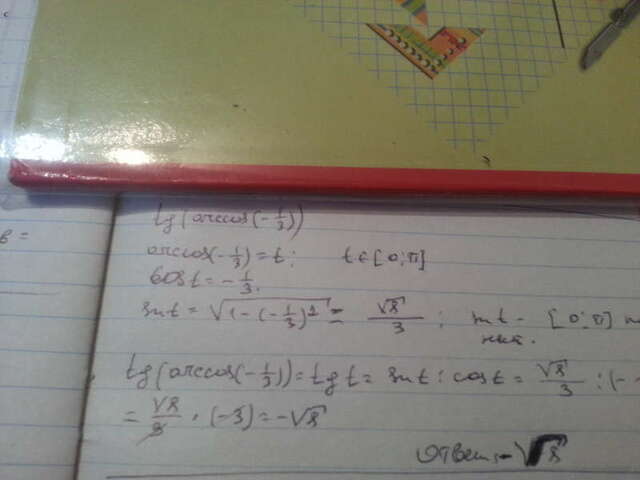 tg(arccos(-1/3))
в =
arccos(-1/3) = t; t∈[0;π]
cos t = -1/3.
sin t = √(1-(-1/3)²) = √8/3 ; [0;π]
tg(arccos(-1/3)) = tg t = sin t : cos t = √8/3 : (-
= √8/3 · (-3) = -√8
Ответ: -√8